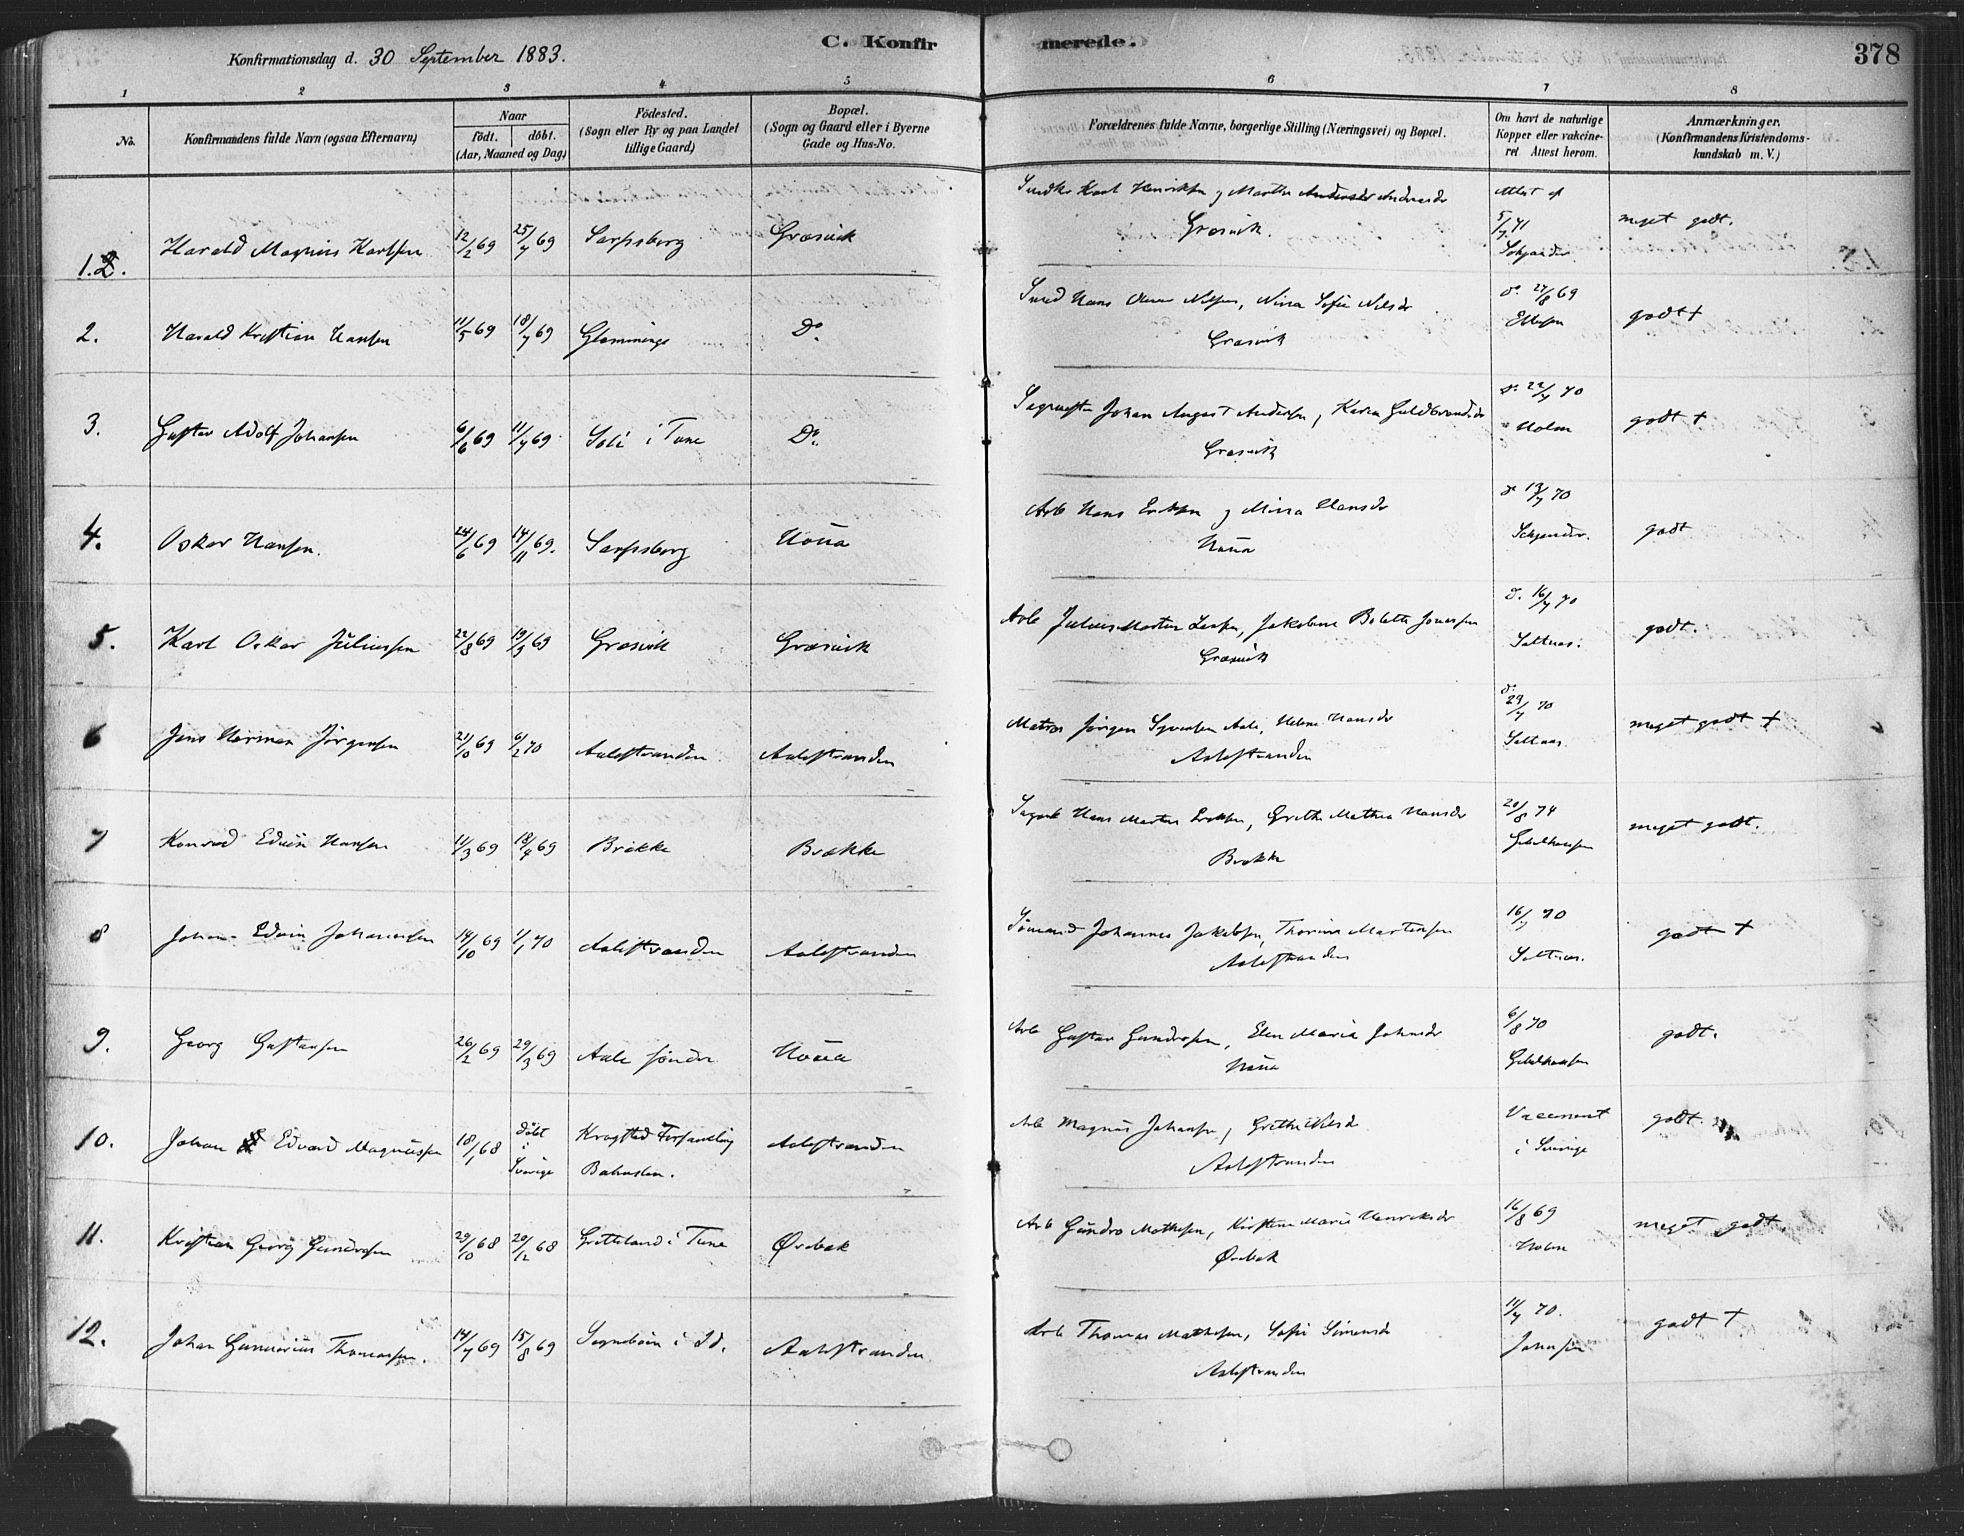 Konfirmationsdag d. 30 September 1883.
C. Konfirmerede.
378
1 2 3 4 5 6 7 8
No.
Konfirmandens fulde Navn (ogsaa Efternavn)
Naar
födt. döbt.
(Aar, Maaned og Dag)
Födested.
(Sogn eller By og paa Landet
tillige Gaard)
Bopæl.
(Sogn og Gaard eller i Byerne
Gade og Hus-No.
Forældrenes fulde Navne, borgerlige Stilling (Næringsvei) og Bopæl.
Om havt de naturlige
Kopper eller vakcine-
ret Attest herom.
Anmærkninger.
(Konfirmandens Kristendoms-
kundskab m. V.)
1. Harald Magnus Karlsen 12/2 69 25/4 69 Sarpsborg Græsvik
Karl Henriksen og Marthe Andreasdr
Græsvik.
Attest af
meget godt.
2. Harald Kristian Hansen 11/5 69 18/7 69 Glemminge Do.
Smed Hans Nilsen, Nina Sofie Nilsdr
Græsvik
do. 27/8 69
godt +
3. Gustav Adolf Johansen 6/6 69 11/7 69 Soli i Tune Do.
Johan August Andersen, Karen Guldbrandsdr
Græsvik
do. 22/7 70
Holm
godt +
4. Oskar Hansen. 24/6 69 14/11 69. Sarpsborg Houa
Arb Hans Eriksen og Mina Hansdr
Houa
70
godt
5. Karl Oskar Juliussen 22/8 69 19/9 69 Græsvik Græsvik
Arb Julius Morten, Jakobine Bolette Jonassen
Græsvik
do. 16/7 70
Saltnes.
godt.
6 Jens Herman Jörgensen 21/10 69 6/2 70 Aalestranden Aalestranden
Matros Jörgen Syversen Aale, Helene Hansdr
Aalestranden
do. 29/7 70
Saltnes.
meget godt +
7 Konrad Edvin Hansen 11/3 69 18/4 69 Brække Brække
Hans Martin Eriksen, Grethe Mathea Hansdr
Brække
20/8 74
Gebelhausen
meget godt.
8 Johan Edvin Johannesen 14/10 69 1/1 70 Aalestranden Aalestranden
Sömand Johannes Jakobsen, Thorine Martensen
Aalestranden
16/7 70
Saltnes.
godt +
9. Georg Gustavsen 26/2 69 29/3 69 Aale söndre Houa
Arb Gustav Gundersen, Elen Maria Johnsdr
Houa
6/8 70
Gebelhausen
godt.
10. Johan Edvard Magnussen 18/1 68
döbt
i
Sverige
Krogstad Forsamling
Bahuslen.
Aalestranden
Arb Magnus Johansen, Grethe Nilsd
Aalestranden
Vaccineret
i Sverige
godt.
11. Kristian Georg Gundersen 29/10 68 20/12 68 Grætteland i Tune Örebæk
Arb Gundro Mathesen, Kirstine Marie Henriksdr
Örebæk
16/8 69
Holm
meget godt.
12. Johan Gunerius Thomassen. 14/7 69 15/8 69 i Id. Aalestranden
Arb Thomas Mathesen, Sofie Simensdr
Aalestranden
11/7 70.
Johnsen
godt +